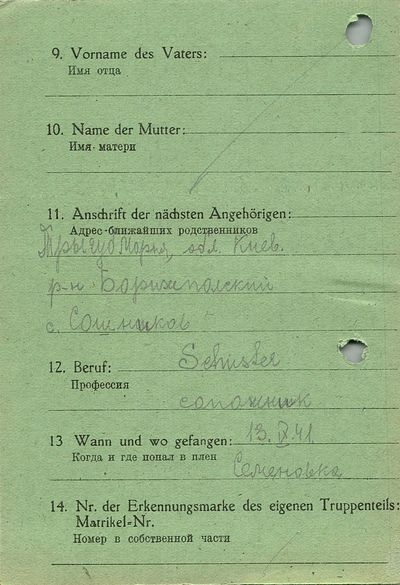 9. Vorname des Vaters:
Имя отца
10. Name der Mutter:
Имя матери
11. Anschrift der nächsten Angehörigen:
Адрес ближайших родственников
обл. Киев.
р-н Бориспольский
с. Сошников
12. Beruf: Schuster
Профессия
сапожник
13 Wann und wo gefangen: 13. IX. 41
Когда и где попал в плен
Семеновка
14. Nr. der Erkennungsmarke des eigenen Truppenteils:
Matrikel-Nr.
Номер в собственной части